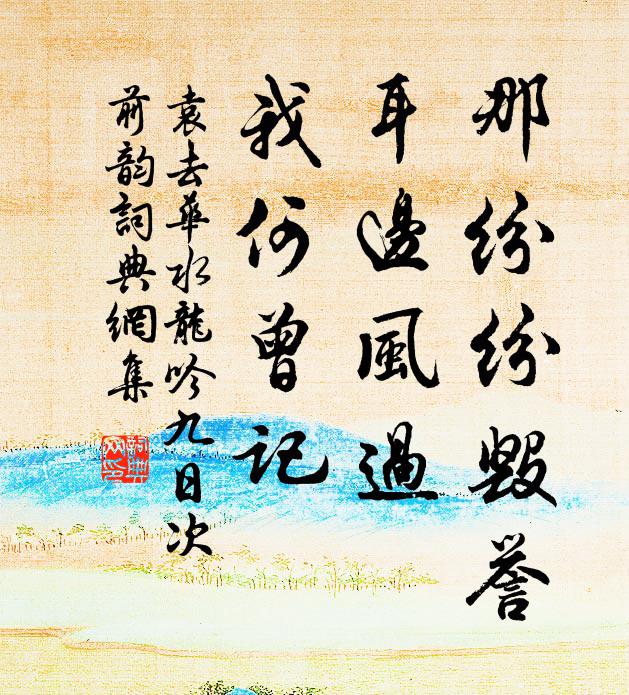 那紛紛毀譽
耳邊風過
我何曾記
袁去華水龍吟九日次
前韵詞典網集